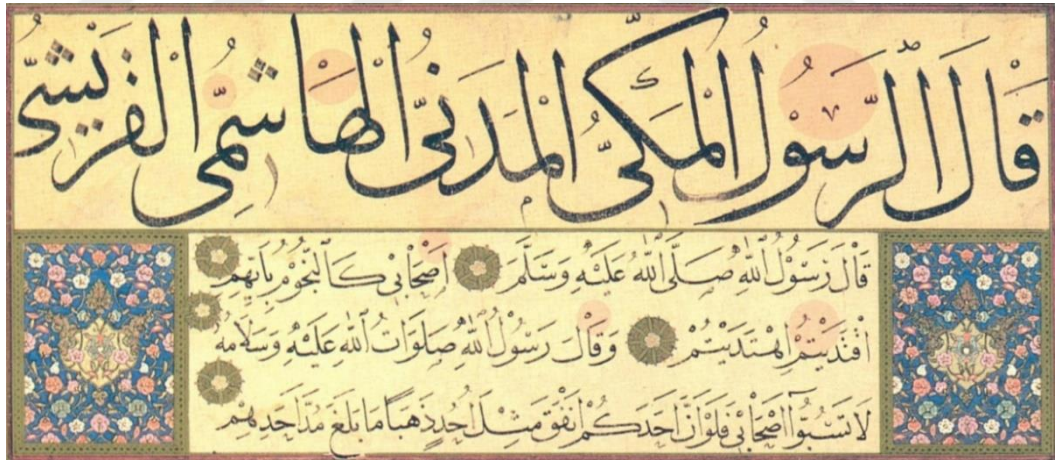 قَالَ الرَّسُولُ الْمَكِّيُّ الْمَدَنِيُّ الْهَاشِمِيُّ الْقُرَيْشِيُّ
قَالَ رَسُوْلُ اللّٰهِ صَلَّى اللّٰهُ عَلَيْهِ وَسَلَّمَ اَصْحَابِيْ كَالنُّجُوْمِ بِاَيِّهِمْ
اقْتَدَيْتُمْ اهْتَدَيْتُمْ وَقَالَ رَسُوْلُ اللّٰهِ صَلَوَاتُ اللّٰهِ عَلَيْهِ وَسَلَامُهُ
لَا تَسُبُّوْا اَصْحَابِيْ فَلَوْ اَنَّ اَحَدَكُمْ اَنْفَقَ مِثْلَ اُحُدٍ ذَهَبًا مَا بَلَغَ مُدَّ اَحَدِهِمْ